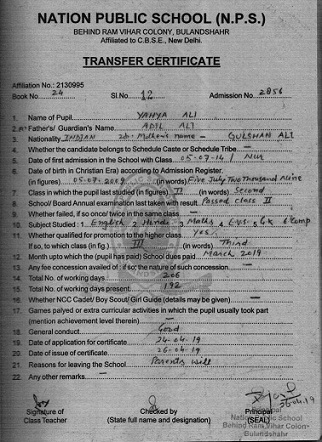 NATION PUBLIC SCHOOL (N.P.S.)
BEHIND RAM VIHAR COLONY, BULANDSHAHR
Affiliated to C.B.S.E., New Delhi.
TRANSFER CERTIFICATE
Affiliation No.: 2130995
Book No. 24 Sl.No. 12 Admission No. 2856
1. Name of Pupil YAHYA ALI
2.A Father's/ Guardian's Name ADIL ALI
3. Nationality INDIAN 2b- Mother's name - GULSHAN ALI
4. Whether the candidate belongs to Schedule Caste or Schedule Tribe —
5. Date of first admission in the School with Class 05-07-14 / Nur
6. Date of birth in Christian Era) according to Admission Register.
(in figures) 05-07-2009 (in words) Five July Two Thousand Nine
7. Class in which the pupil last studied (in figures) II (in words) Second
8. School/ Board Annual examination last taken with result. Passed class II
9. Whether failed, if so once/ twice in the same class —
10. Subject Studied : 1. English 2. Hindi 3. Maths 4. E.V.S 5. G.K 6. Comp
11. Whether qualified for promotion to the higher class Yes
If so, to which class (in fig.) III (in words) Third
12. Month upto which the (pupil has paid) School dues paid March 2019
13. Any fee concession availed of : if so; the nature of such concession —
14. Total No. of working days 206
15. Total No. of working days present 192
16. Whether NCC Cadet/ Boy Scout/ Girl Guide (details may be given) —
17. Games palyed or extra curricular activities in which the pupil usually took part
(mention achievement level therein) —
18. General conduct Good
19. Date of application for certificate 24-04-19
20. Date of issue of certificate 26-04-19
21. Reasons for leaving the School Parents will
22. Any other remarks —
Signature of
Class Teacher
Checked by
(State full name and designation)
26-04-19
Principal
(SEAL)
National Public School
Behind Ram Vihar Colony
Bulandshahr